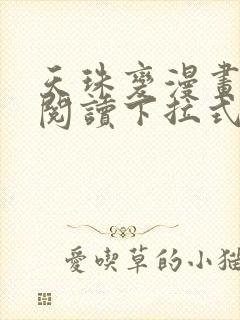 天珠變漫畫
閱讀下拉式
愛喫草的小貓